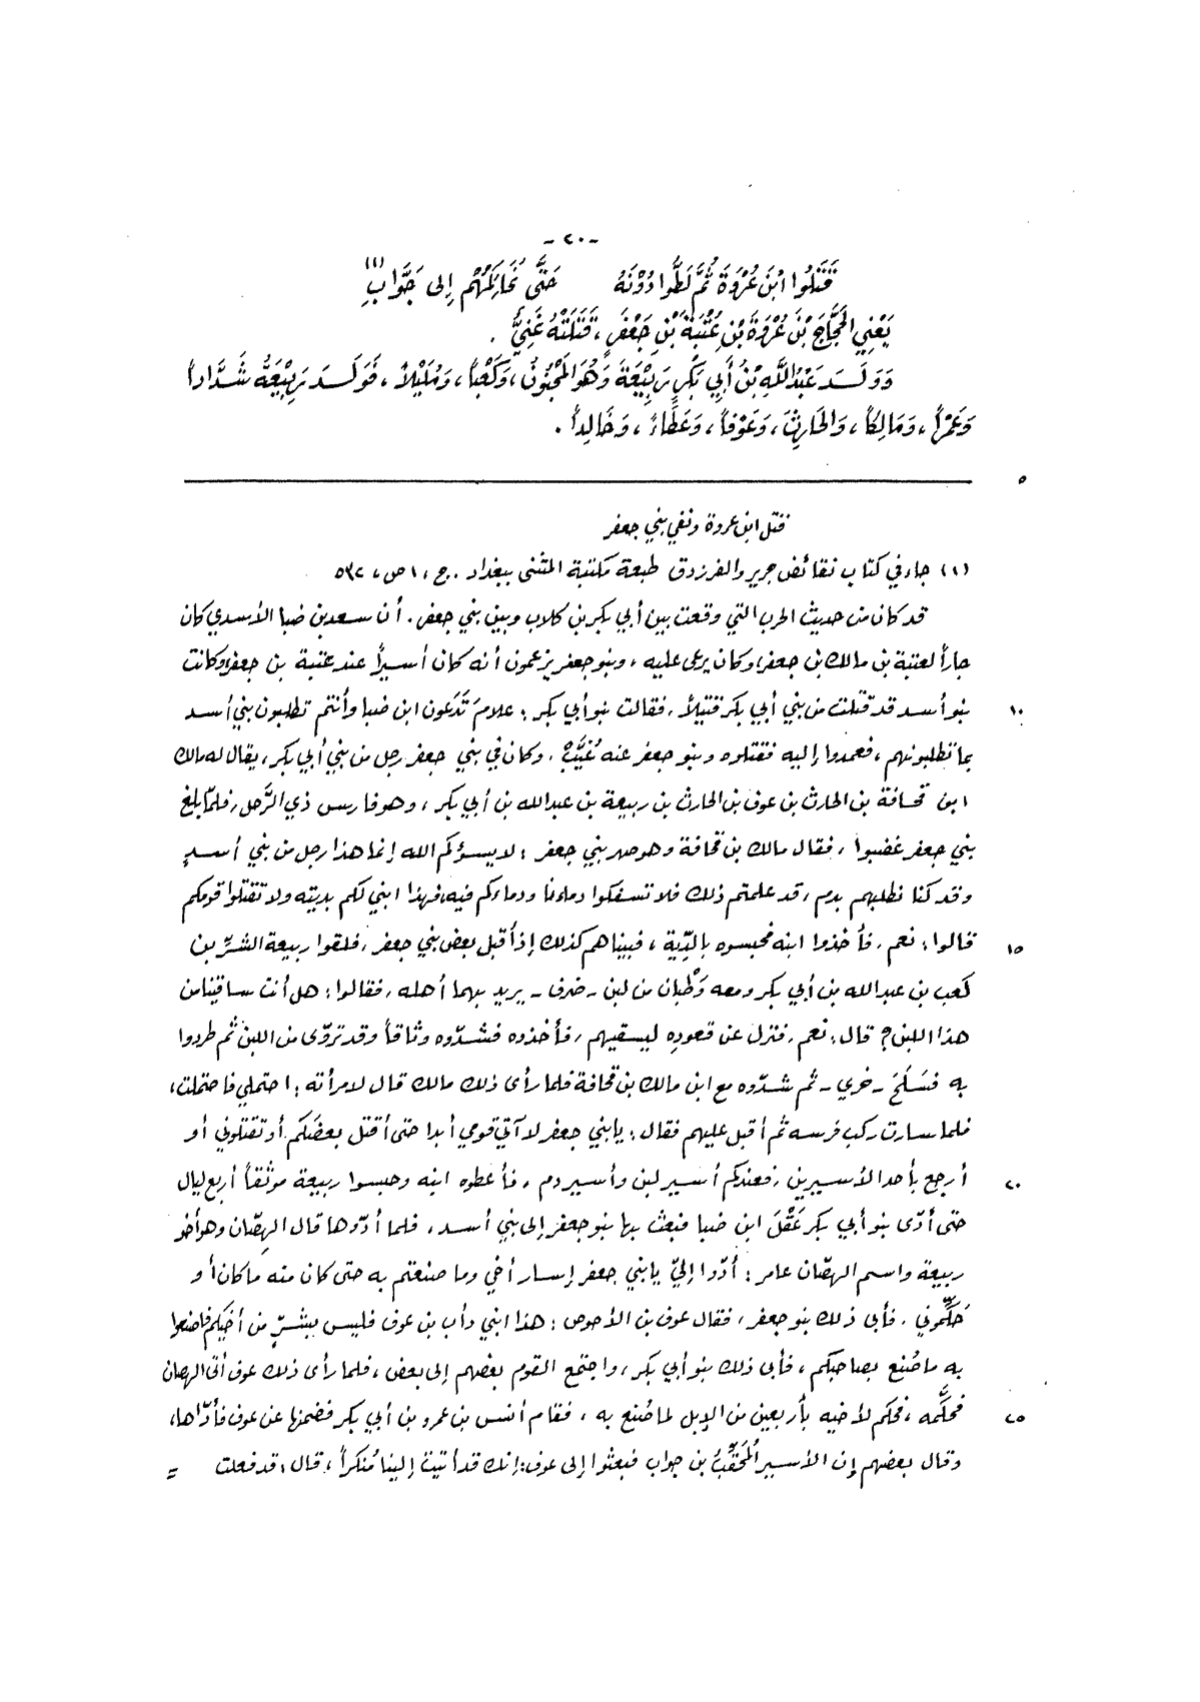 -٢٠-
قَتَلُوا ابْنَ عُرْوَةَ ثُمَّ لَطُّوا دُوْنَهُ حَتَّى نُحَاكِمَهُمْ إِلى جَوَّابِ (١)
يَعْنِي الحَجَّاجَ بْنَ عُرْوَةَ بْنِ عُتْبَةَ بْنِ جَعْفَرٍ ، قَتَلَتْهُ غَنِيٌّ .
وَوَلَـدَ عَبْدُ اللَّهِ بْنُ أَبِي بَكْرٍ رَبِيْعَةَ وَهُوَ المَجْنُونُ ، وَكَعْباً ، وَمُلَيْلاً ، فَوَلَـدَ رَبِيْعَةُ شَدَّاداً
وَعَمْراً ، وَمَالِكاً ، وَالحَارِثَ ، وَعَوْفاً ، وَعَطَاءً ، وَخَالِداً .
٥
قتل ابن عروة ونفي بني جعفر
(١) جاء في كتاب نقائض جرير والفرزدق طبعة مكتبة المثنى ببغداد . ج ، ١ ص ، ٥٣٢
قد كان من حديث الحرب التي وقعت بين أبي بكر بن كلاب وبين بني جعفر . أن سعد بن ضبا الأسدي كان
جاراً لعتبة بن مالك بن جعفر ، وكان يرعى عليه ، وبنو جعفر يزعمون أنه كان أسيراً عند عتبة بن جعفر ، وكانت
١٠ بنو أسد قد قتلت من بني أبي بكر قتيلاً ، فقالت بنو أبي بكر : علامَ تَدَعون ابن ضبا وأنتم تطلبون بني أسد
بما تطلبونهم ، فعمدوا إليه فقتلوه وبنو جعفر عنه غُيَّبٌ . وكان في بني جعفر رجل من بني أبي بكر ، يقال له مالك
ابن قحافة بن الحارث بن عوف بن الحارث بن ربيعة بن عبد الله بن أبي بكر ، وهو فارس ذي الرَّحل ، فلمّا بلغ
بني جعفر غضبوا ، فقال مالك بن قحافة وهو صهر بني جعفر : لا يسؤكم الله إنما هذا رجل من بني أسدٍ
وقد كنا نطلبهم بدم ، قد علمتم ذلك فلا تسفكوا دماءنا ودماءكم فيه ، فهذا ابني لكم بديته ولا تقتلوا قومكم
١٥ قالوا : نعم . فأخذوا ابنه فحبسوه بالدِّية ، فبيناهم كذلك إذ أقبل بعض بني جعفر ، فلقوا ربيعة الشرِّ بن
كعب بن عبد الله بن أبي بكر ومعه وَطْبان من لبن - ضرف - يريد بهما أهله ، فقالوا : هل أنت ساقينا من
هذا اللبن ؟ قال : نعم ، فنزل عن قعودِه ليسقيهم ، فأخذوه فشدّوه وثاقاً وقد تروّى من اللبن ثم طردوا
به فسَلَحَ - خري - ثم شدّوه مع ابن مالك بن قحافة فلما رأى ذلك مالك قال لامرأته : احتملي فاحتملت ،
فلما سارت ركب فرسه ثم أقبل عليهم فقال : يا بني جعفر لا آتي قومي أبدا حتى أقتل بعضَكم أو تقتلوني أو
٢٠ أرجع بأحد الأسيرين ، فعندكم أسير لبن وأسير دم ، فأعطوه ابنه وحبسوا ربيعة موثقاً أربع ليال
حتى أدّى بنو أبي بكر عَقْلَ ابن ضبا فبعث بها بنو جعفر إلى بني أسد ، فلما أدّوها قال الهِصّان وهو أخو
ربيعة واسم الهصّان عامر : أدّوا إليّ يا بني جعفر إسار أخي وما صنعتم به حتى كان منه ما كان أو
حَكِّموني . فأبى ذلك بنو جعفر ، فقال عوف بن الأحوص : هذا ابني دأب بن عوف فليس بشرٍّ من أخيكم فاصنعوا
به ما صُنع بصاحبكم ، فأبى ذلك بنو أبي بكر ، واجتمع القوم بعضهم إلى بعض ، فلما رأى ذلك عوف أتى الهصان
٢٥ فحكَّمه ، فحكم لأخيه بأربعين من الإبل لما صُنع به ، فقام أنس بن عمرو بن أبي بكر فضمنها عن عوف فأدّاها ،
وقال بعضهم إن الأسير المُحَقَّبُ بن جواب فبعثوا إلى عوف : إنك قد أتيت إلينا مُنكراً ، قال : قد فعلت =